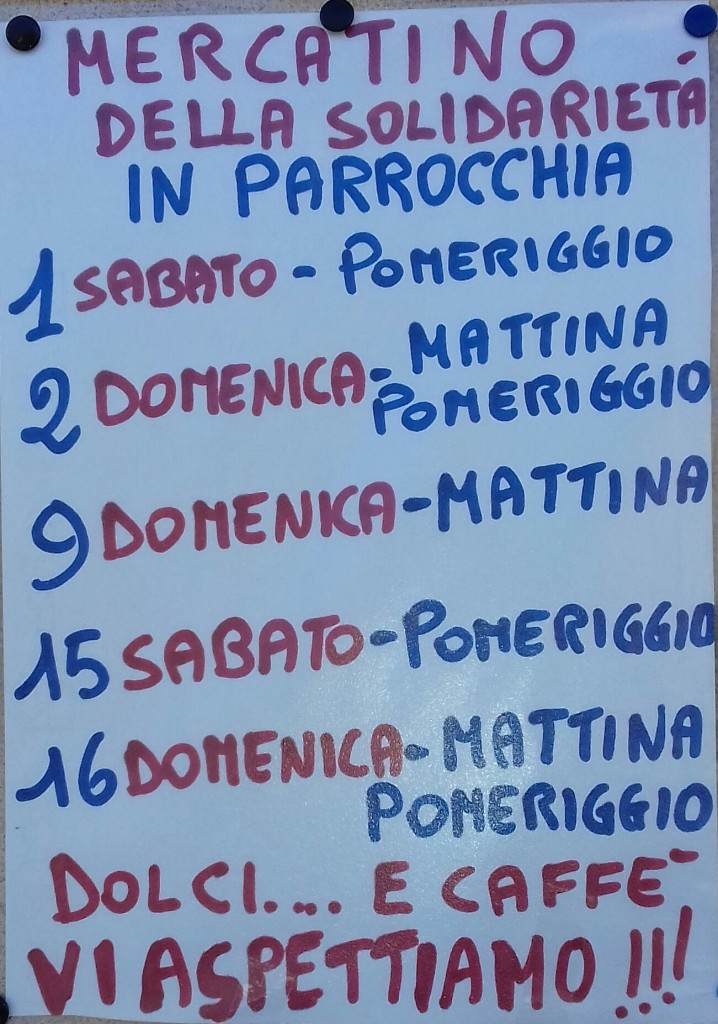 MERCATINO
DELLA SOLIDARIETÁ
IN PARROCCHIA
1 SABATO - POMERIGGIO
2 DOMENICA - MATTINA
POMERIGGIO
9 DOMENICA - MATTINA
15 SABATO - POMERIGGIO
16 DOMENICA - MATTINA
POMERIGGIO
DOLCI.... E CAFFE`
VI ASPETTIAMO !!!